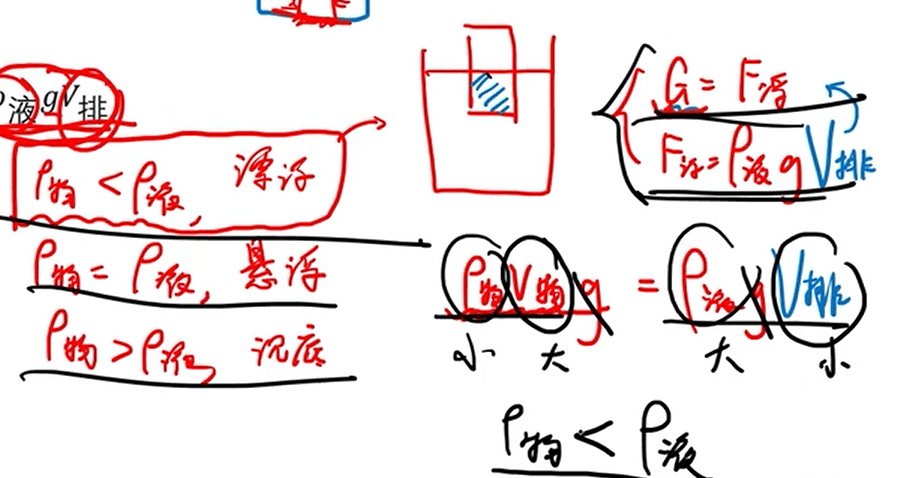 ρ液gV排
ρ物 < ρ液, 漂浮
ρ物 = ρ液, 悬浮
ρ物 > ρ液, 沉底
G = F浮
F浮 = ρ液 g V排
ρ物 V物 g = ρ液 g V排
小 大 大 小
ρ物 < ρ液